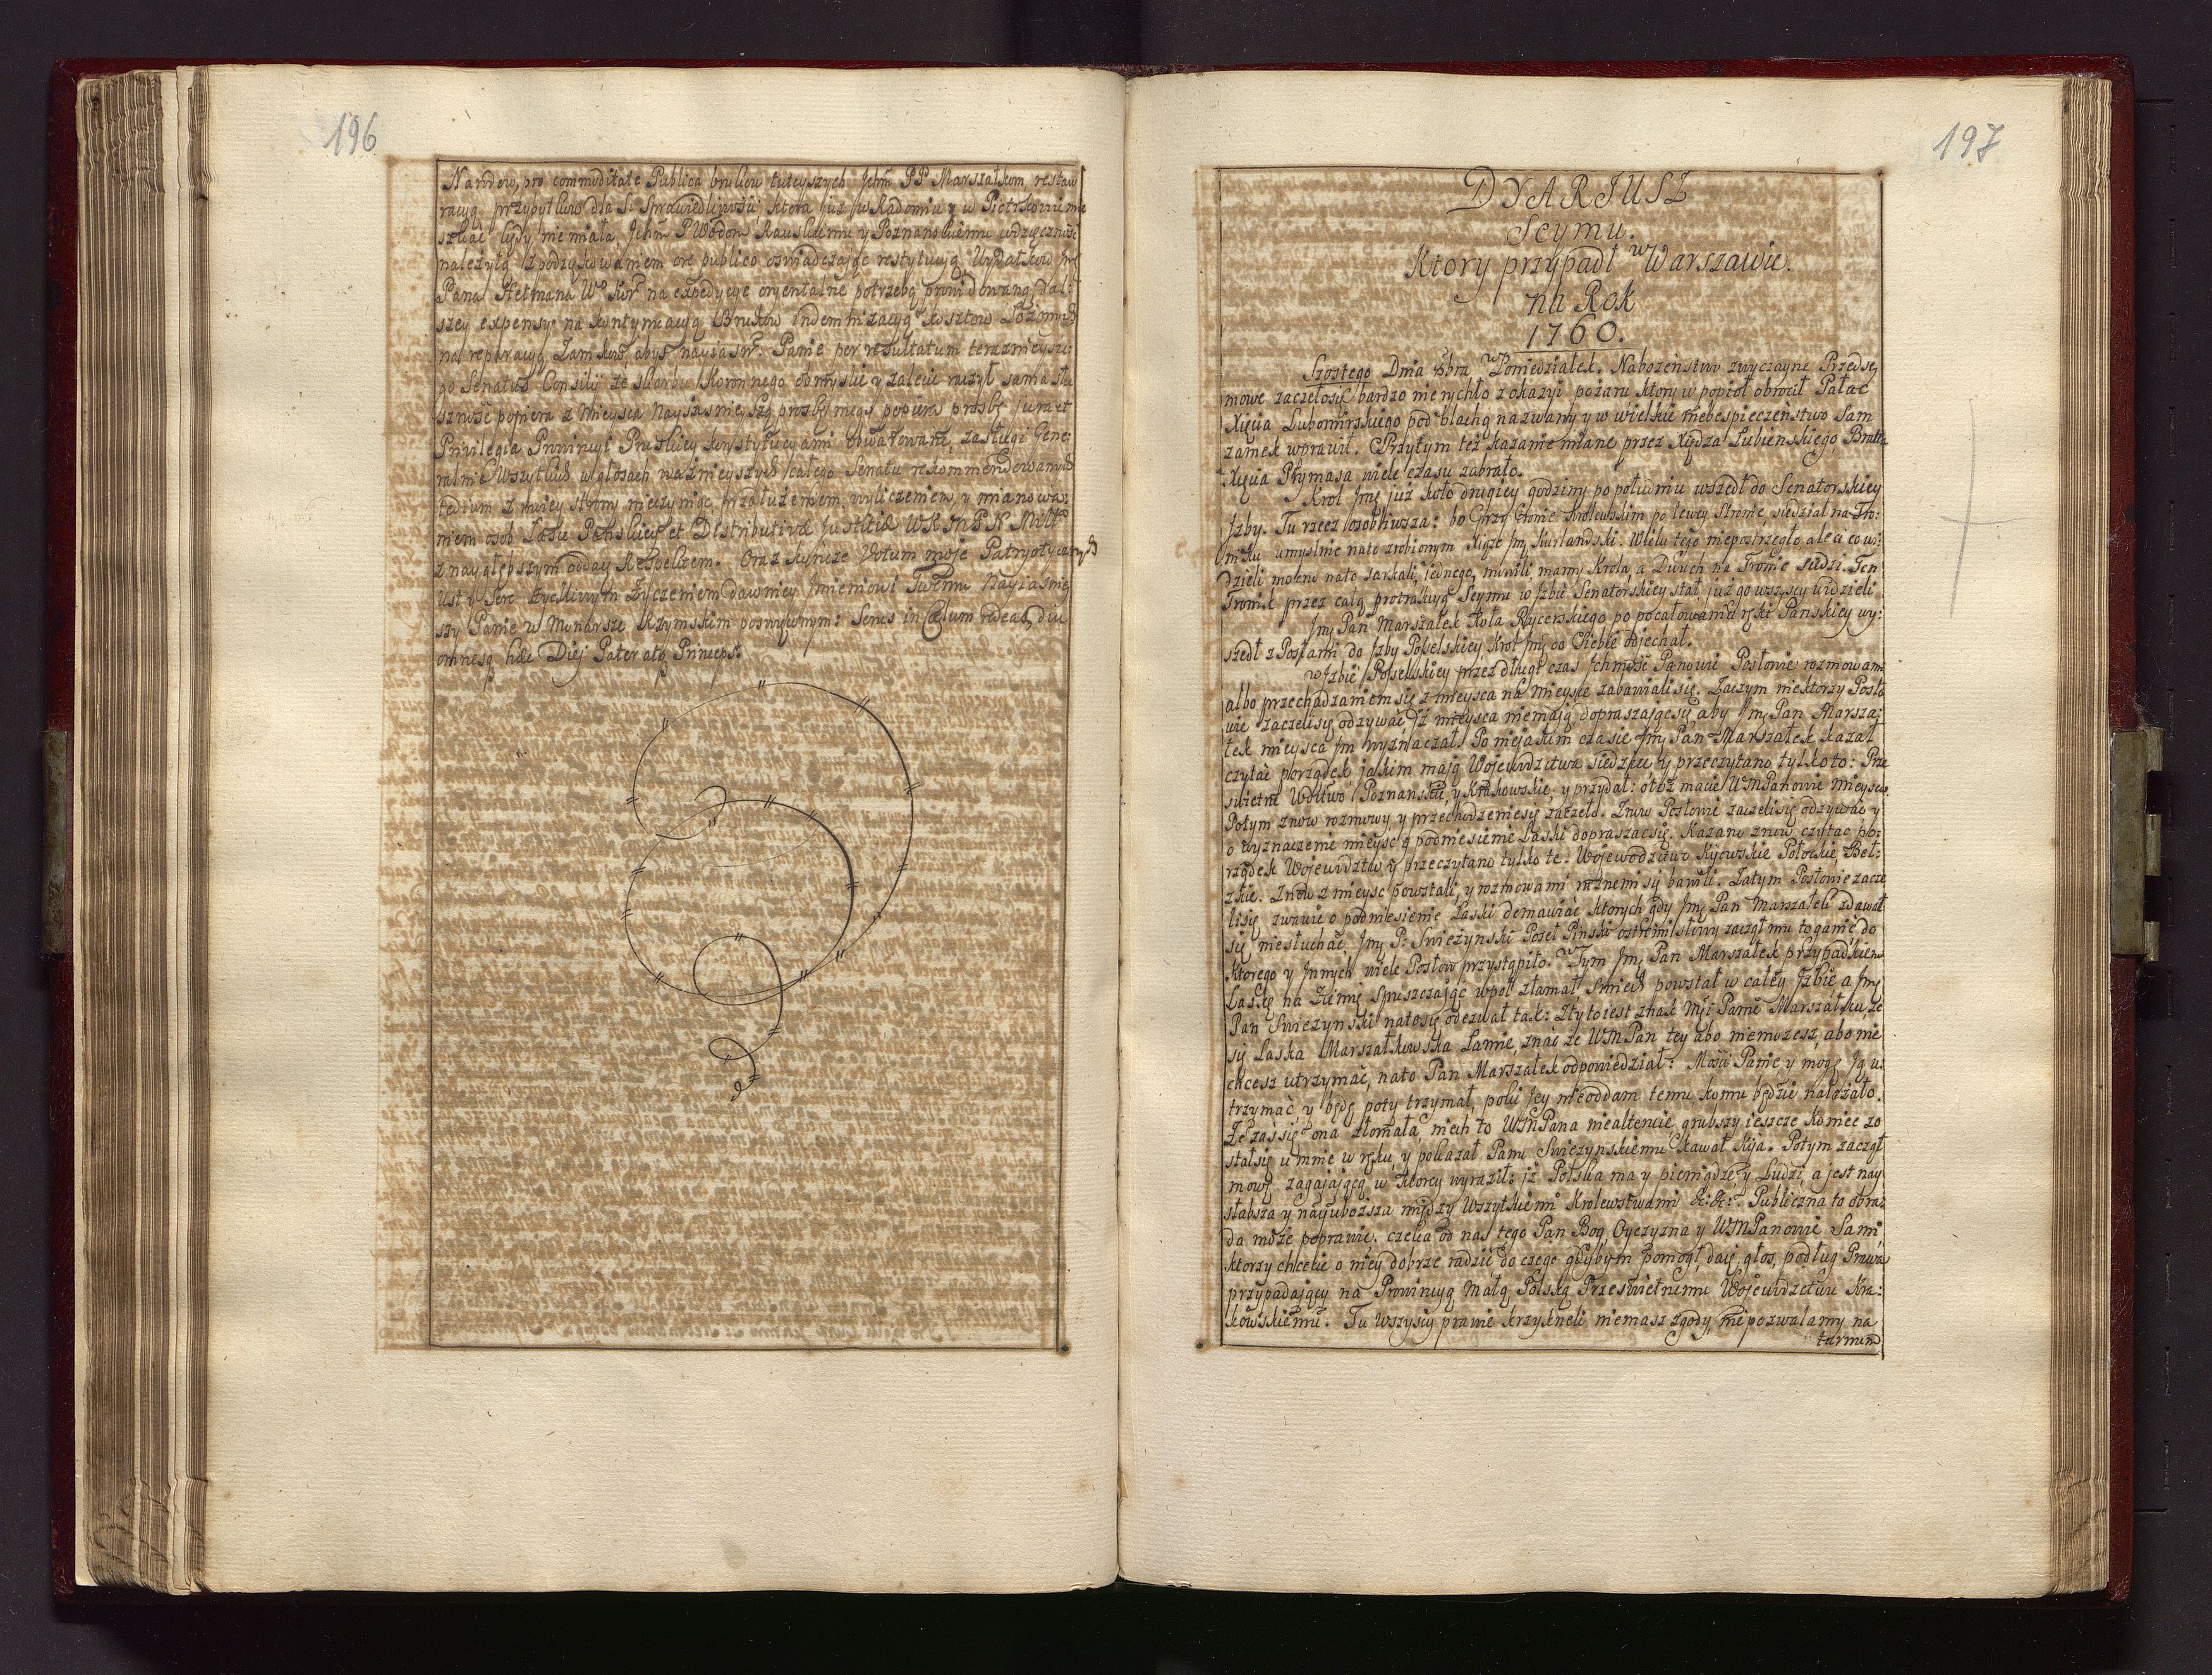 196
Narodow, pro commoditate Publica brukow tuteyszych Jchm PP Marszałkom, restau
racyą przybytkow dla S: Sprawiedliwości ktora już w Radomiu y w Piotrkowie mie
szkać kędy nie miała Jchm P Wdom Rawskiemu y Poznanskiemu wdzięczność
należytą z podzękowaniem ore publico oswiadczając restytucyą Wydatkow Jm
Pana Hetmana Wo Kor na expedycye oryentalne potrzebą prowidowaną dal:
szey expensy na kontynuacyą Brukow indemnizacyą kosztow Łożonych
na reparacyą Zamkow abyś nayiasń: Panie per resultatum teraznieysze:
go Senatus Consilii ze skarbu Koronnego obmyslić y zalecić raczył sama słu
szność popiera z mieysca Nayiasnieyszą prosbę mego popiera prosbę jura et
Privilegia Prowincyi Pruskiey konstytucyami obwarowane, zasługi Gene:
ralnie Wszytkich w głosach ważnieyszych całego Senatu rekommendowanych
tedium z moiey strony nieczyniąc przedłużeniem, wyliczeniem, y mianowa:
niem osob Łasce Panskiey et Distributivæ Justitiæ WK Mci P N Miłto
z nayglębszym oddaę Respektem. Oraz kończe Votum moje Patryotycznych
ust y Serc życzliwym życzeniem dawniey Jmieniowi Twemu Nayiasniey
szy Panie w Monarsze Rzymskim poswięconym: Serus in Cœlum redeas, diu
omnesq hic Dicj Pater atq Princeps.
197
DYARIUSZ
Seymu.
Ktory przypadł w Warszawie.
na Rok
1760.
Szostego Dnia 8bra w Poniedziałek. Nabożenstwo zwyczayne Przedsey
mowe zaczęłosię bardzo nierychło z okazyi pożaru ktory w popioł obrocił Pałac
Xięcia Lubomirskiego pod blachą nazwany y w wielkie niebespieczenstwo Sam
zamek wprawił. Przytym też kazanie miane przez Xiędza Lubienskiego Brata
Xięcia Prymasa wiele czasu zabrało.
Krol Jmć już koło drugiey godziny po południu wszedł do Senatorskiey
Jzby. Tu rzecz osobliwsza: bo przy Tronie Krolewskim po lewey stronie, siedział na Tro:
niku umyslnie nato zrobionym Xiąże Jmć Kurlandski. Wielu tego niepostrzegło ale ci co wi:
dzieli mocno nato sarkali, jednego, mowili, mamy Krola, a Dwuch na Tronie siedzi. Ten
Tronik przez całą protrakcyą Seymu w Jzbie Senatorskiey stał już go wszyscy widzieli
Jmć Pan Marszałek Koła Rycerskiego po pocałowaniu ręki Panskiey wy:
szedł z Posłami do Jzby Poselskiey Krol Jmć do Siebie odjechał.
w Jzbie Poselskiey przez długi czas Jchmość Panowie Posłowie rozmowami
albo przechadzaniem się z mieysca na mieysce zabawiali się. Zaczym niektorzy Posło
wie zaczelisię odzywać iż mieysca niemają dopraszającsię aby Jmć Pan Marsza:
łek mieysca im wyznaczał. Po niejakim czasie Jmć Pan Marszałek kazał
czytać porządek jakim mają Wojewodztwa siedzieć y przeczytano tylko to: Prze
świetne Wdztwo Poznanskie, y Krakowskie, y przydał: otoż macie WMPanowie mieysca
Potym znow rozmowy y przechodzeniesię zaczęło. Znow Posłowie zaczelisię odzywać y
o wyznaczenie mieysc y podniesienie Laski dopraszacsię. Kazano znow czytac po:
rządek Wojewodztw y przeczytano tylko te. Wojewodztwo Kijowskie Połockie, Bełs
zkie. Znow z mieysc powstali, y rozmowami roznemi się bawili. Zatym Posłowie zacze
lisię zwawie o podniesienie Laski domawiać ktorych gdy Jmć Pan Marszałek zdawał
się niesłuchać, Jmć P: Swieżynski Poseł Pinski ostremi słowy zaczął mu to ganić do
ktorego y Jnnych wiele Posłow przystąpiło. W Tym Jmć Pan Marszałek przypadkiem
Laskę na Ziemię spuszczając wpoł złamał Smiech powstał w całey Jzbie a Jmć
Pan Swieżynski natosię odezwał tak: Zły to iest znak Mści Panie Marszałku, że
się Laska Marszałkowska Łamie, znać że WMPan tey abo niemożesz, abo nie
chcesz utrzymać, nato Pan Marszałek odpowiedział: Mości Panie, y mogę Ją u:
trzymać y będę poty trzymał, poki Jey nieoddam temu komu będzie należało.
Że zaś się ona złomała, niech to WMPana niealteruie, grubszy ieszcze koniec zo
stał się u mnie w ręku, y pokazał Panu Swieżynskiemu kawał Kija. Potym zaczął
mowę zagajającą w ktorey wyraził: iż Polska ma y pieniądze, y Ludzi, a jest nay
słabsza y nayuboższa między Wszytkiemi Krolewstwami &c: &c: Publiczna to obra:
da może poprawić. czeka od nas tego Pan Bog, Oyczyzna y WMPanowie Sami,
ktorzy chcecie o niey dobrze radzić do czego gdybym pomogł, daię głos, podług Prawa
przypadający na Prowincyą Małą Polską Przeswietnemu Wojewodztwu Kra:
kowskiemu. Tu wszyscy prawie krzykneli niemasz zgody, niepozwalamy na
turnum